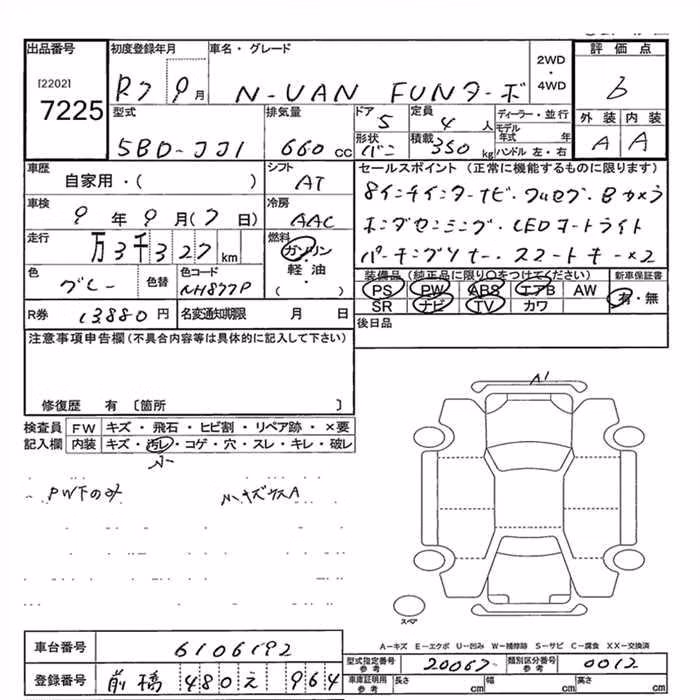 出品番号 初度登録年月 車名・グレード 2WD・4WD 評価点
[2202] 7225 R7 9月 N-VAN FUNターボ 6
型式 排気量 ドア 5 定員 4人 ディーラー・並行 外装 内装
5BD-JJ1 660cc 形状 バン 積載 350kg モデル年式 年 ハンドル 左・右 A A
車歴 自家用・( ) シフト AT セールスポイント (正常に機能するものに限ります)
8インチインターナビ・フルセグ・Bカメラ
車検 9年9月(7日) 冷房 AAC ホンダセンシング・LEDオートライト
走行 万3千327km 燃料 ガソリン 軽・油 ( ) パーキングソナー・スマートキー×2
色 グレー 色替 色コード NH877P 装備品 (純正品に限り○をつけてください) 新車保証書
PS PW ABS エアB AW 有・無
SR ナビ TV カワ
R券 13880円 名変通知期限 月 日 後日品
注意事項申告欄 (不具合内容等は具体的に記入して下さい)
修復歴 有 〔箇所 〕
検査員 FW キズ・飛石・ヒビ割・リペア跡・×要
記入欄 内装 キズ・汚レ・コゲ・穴・スレ・キレ・破レ
小
PWFのみ 小キズウスA
A1
スペア
A-キズ E-エクボ U-凹み W-補修跡 S-サビ C-腐食 XX-交換済
車台番号 6106192 型式指定番号 参考 20067 類別区分番号 参考 0012
登録番号 前橋 480 え 964 車庫証明用 参考 長さ cm 幅 cm 高さ cm